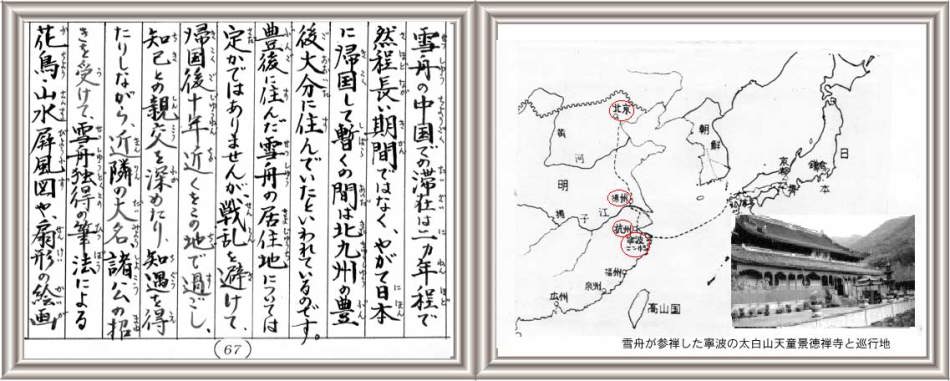 雪舟の中国での滞在は二カ年程で
然程長い期間ではなく、やがて日本
に帰国して暫くの間は北九州の豊
後大分に住んでいたといわれているのです。
豊後に住んだ雪舟の居住地については
定かではありませんが、戦乱を避けて、
帰国後十年近くをこの地で過ごし、
知己との親交を深めたり、知遇を得
たりしながら、近隣の大名・諸公の招
きを受けて、雪舟独得の筆法による
花鳥・山水屏風図や、扇形の絵画
(67)
北京
黄河
朝鮮
日本
京都
鎌倉
明
揚州
揚子江
杭州
寧波
福州
泉州
広州
高山国
雪舟が参禅した寧波の太白山天童景徳禅寺と巡行地